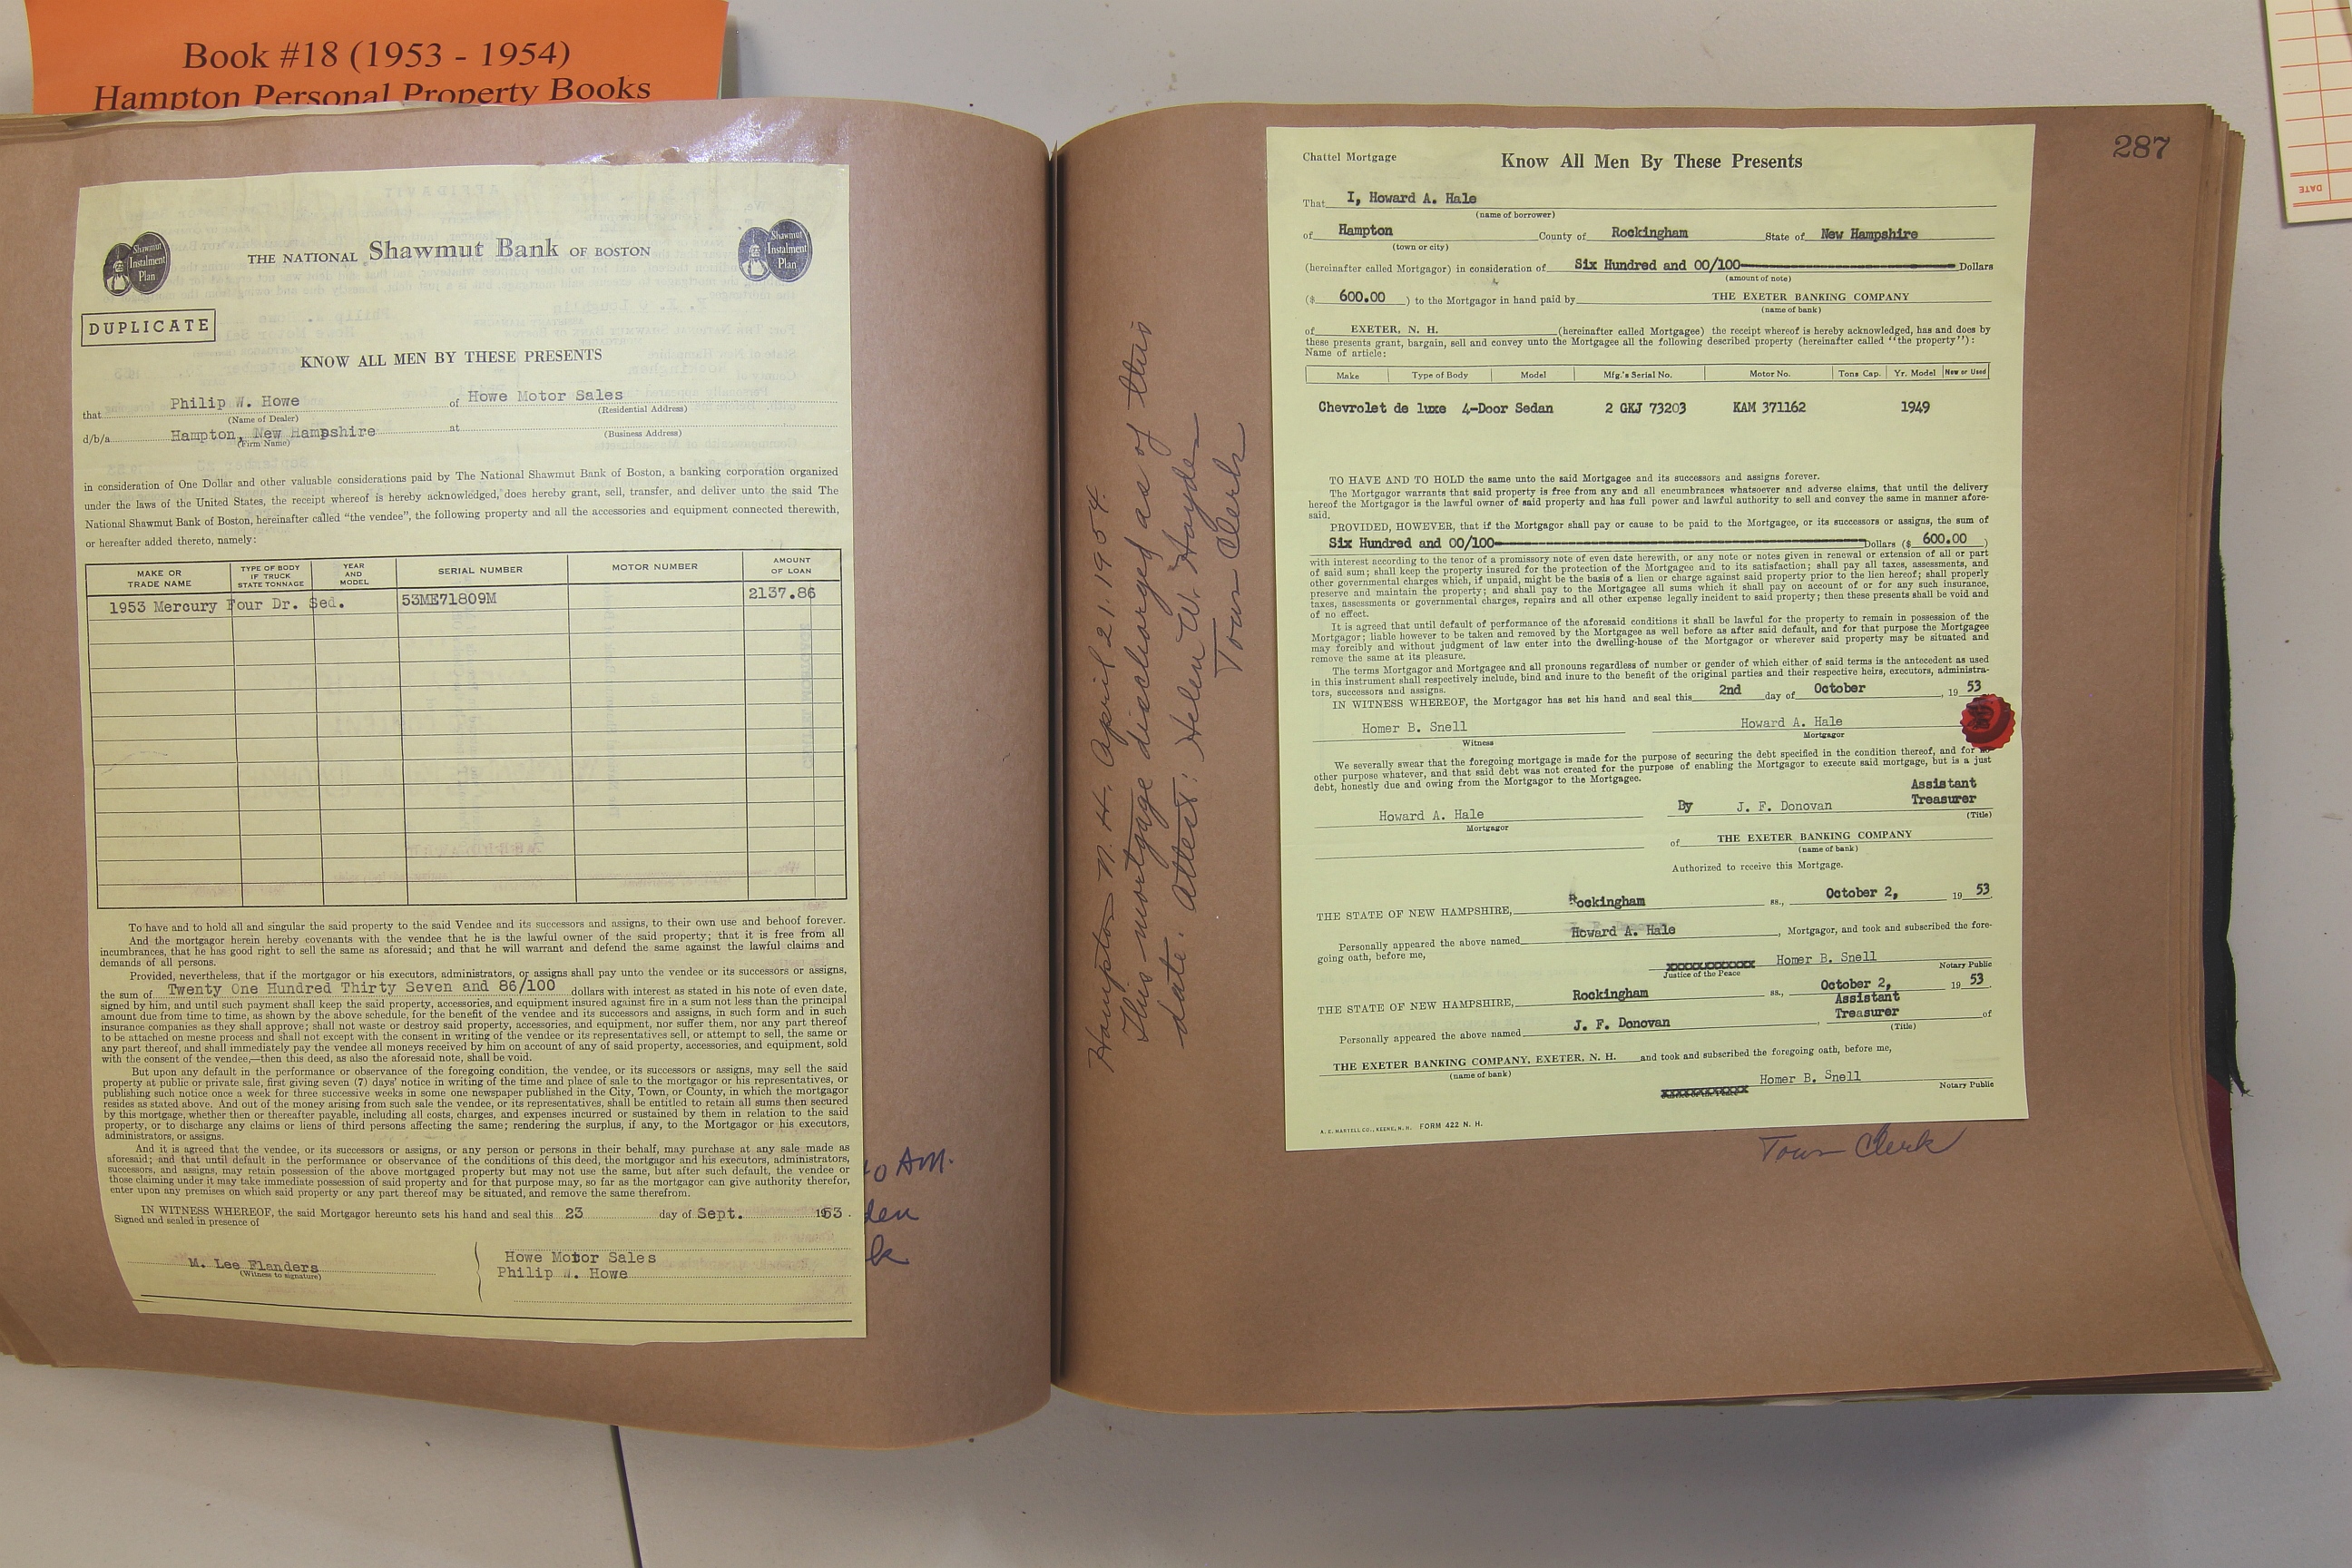 Book #18 (1953 - 1954)
Hampton Personal Property Books
Shawmut
Instalment
Plan
THE NATIONAL Shawmut Bank OF BOSTON
Shawmut
Instalment
Plan
DUPLICATE
KNOW ALL MEN BY THESE PRESENTS
that Philip W. Howe of Howe Motor Sales
(Name of Dealer) (Residential Address)
d/b/a Hampton, New Hampshire at
(Firm Name) (Business Address)
in consideration of One Dollar and other valuable considerations paid by The National Shawmut Bank of Boston, a banking corporation organized
under the laws of the United States, the receipt whereof is hereby acknowledged, does hereby grant, sell, transfer, and deliver unto the said The
National Shawmut Bank of Boston, hereinafter called "the vendee", the following property and all the accessories and equipment connected therewith,
or hereafter added thereto, namely:
MAKE OR TRADE NAME TYPE OF BODY IF TRUCK STATE TONNAGE YEAR AND MODEL SERIAL NUMBER MOTOR NUMBER AMOUNT OF LOAN
1953 Mercury Four Dr. Sed. 53ME71809M 2137.86
To have and to hold all and singular the said property to the said Vendee and its successors and assigns, to their own use and behoof forever.
And the mortgagor herein hereby covenants with the vendee that he is the lawful owner of the said property; that it is free from all
incumbrances, that he has good right to sell the same as aforesaid; and that he will warrant and defend the same against the lawful claims and
demands of all persons.
Provided, nevertheless, that if the mortgagor or his executors, administrators, or assigns shall pay unto the vendee or its successors or assigns,
the sum of Twenty One Hundred Thirty Seven and 86/100 dollars with interest as stated in his note of even date,
signed by him, and until such payment shall keep the said property, accessories, and equipment insured against fire in a sum not less than the principal
amount due from time to time, as shown by the above schedule, for the benefit of the vendee and its successors and assigns, in such form and in such
insurance companies as they shall approve; shall not waste or destroy said property, accessories, and equipment, nor suffer them, nor any part thereof
to be attached on mesne process and shall not except with the consent in writing of the vendee or its representatives sell, or attempt to sell, the same or
any part thereof, and shall immediately pay the vendee all moneys received by him on account of any of said property, accessories, and equipment, sold
with the consent of the vendee,—then this deed, as also the aforesaid note, shall be void.
But upon any default in the performance or observance of the foregoing condition, the vendee, or its successors or assigns, may sell the said
property at public or private sale, first giving seven (7) days' notice in writing of the time and place of sale to the mortgagor or his representatives, or
publishing such notice once a week for three successive weeks in some one newspaper published in the City, Town, or County, in which the mortgagor
resides as stated above. And out of the money arising from such sale the vendee, or its representatives, shall be entitled to retain all sums then secured
by this mortgage, whether then or thereafter payable, including all costs, charges, and expenses incurred or sustained by them in relation to the said
property, or to discharge any claims or liens of third persons affecting the same; rendering the surplus, if any, to the Mortgagor or his executors,
administrators, or assigns.
And it is agreed that the vendee, or its successors or assigns, or any person or persons in their behalf, may purchase at any sale made as
aforesaid; and that until default in the performance or observance of the conditions of this deed, the mortgagor and his executors, administrators,
successors, and assigns, may retain possession of the above mortgaged property but may not use the same, but after such default, the vendee or
those claiming under it may take immediate possession of said property and for that purpose may, so far as the mortgagor can give authority therefor,
enter upon any premises on which said property or any part thereof may be situated, and remove the same therefrom.
IN WITNESS WHEREOF, the said Mortgagor hereunto sets his hand and seal this 23 day of Sept. 1953.
Signed and sealed in presence of
M. Lee Flanders
(Witness to signature)
Howe Motor Sales
Philip W. Howe
0 AM.
den
k
Hampton N.H. April 21, 1954.
This mortgage discharged as of this
date. Attest: Helen W. Hayden
Town Clerk
287
Chattel Mortgage Know All Men By These Presents
That I, Howard A. Hale
(name of borrower)
of Hampton County of Rockingham State of New Hampshire
(town or city)
(hereinafter called Mortgagor) in consideration of Six Hundred and 00/100 Dollars
(amount of note)
($ 600.00 ) to the Mortgagor in hand paid by THE EXETER BANKING COMPANY
(name of bank)
of EXETER, N. H. (hereinafter called Mortgagee) the receipt whereof is hereby acknowledged, has and does by
these presents grant, bargain, sell and convey unto the Mortgagee all the following described property (hereinafter called "the property"):
Name of article:
Make Type of Body Model Mfg.'s Serial No. Motor No. Tons Cap. Yr. Model New or Used
Chevrolet de luxe 4-Door Sedan 2 GKJ 73203 KAM 371162 1949
TO HAVE AND TO HOLD the same unto the said Mortgagee and its successors and assigns forever.
The Mortgagor warrants that said property is free from any and all encumbrances whatsoever and adverse claims, that until the delivery
hereof the Mortgagor is the lawful owner of said property and has full power and lawful authority to sell and convey the same in manner afore-
said.
PROVIDED, HOWEVER, that if the Mortgagor shall pay or cause to be paid to the Mortgagee, or its successors or assigns, the sum of
Six Hundred and 00/100 Dollars ($ 600.00 )
with interest according to the tenor of a promissory note of even date herewith, or any note or notes given in renewal or extension of all or part
of said sum; shall keep the property insured for the protection of the Mortgagee and to its satisfaction; shall pay all taxes, assessments, and
other governmental charges which, if unpaid, might be the basis of a lien or charge against said property prior to the lien hereof; shall properly
preserve and maintain the property; and shall pay to the Mortgagee all sums which it shall pay on account of or for any such insurance,
taxes, assessments or governmental charges, repairs and all other expense legally incident to said property; then these presents shall be void and
of no effect.
It is agreed that until default of performance of the aforesaid conditions it shall be lawful for the property to remain in possession of the
Mortgagor; liable however to be taken and removed by the Mortgagee as well before as after said default, and for that purpose the Mortgagee
may forcibly and without judgment of law enter into the dwelling-house of the Mortgagor or wherever said property may be situated and
remove the same at its pleasure.
The terms Mortgagor and Mortgagee and all pronouns regardless of number or gender of which either of said terms is the antecedent as used
in this instrument shall respectively include, bind and inure to the benefit of the original parties and their respective heirs, executors, administra-
tors, successors and assigns.
IN WITNESS WHEREOF, the Mortgagor has set his hand and seal this 2nd day of October, 19 53
Homer B. Snell Howard A. Hale
Witness Mortgagor
We severally swear that the foregoing mortgage is made for the purpose of securing the debt specified in the condition thereof, and for no
other purpose whatever, and that said debt was not created for the purpose of enabling the Mortgagor to execute said mortgage, but is a just
debt, honestly due and owing from the Mortgagor to the Mortgagee.
Howard A. Hale By J. F. Donovan Assistant Treasurer
Mortgagor (Title)
of THE EXETER BANKING COMPANY
(name of bank)
Authorized to receive this Mortgage.
THE STATE OF NEW HAMPSHIRE, Rockingham ss., October 2, 19 53.
Personally appeared the above named Howard A. Hale, Mortgagor, and took and subscribed the fore-
going oath, before me,
xxxxxxxxxxxxxx Homer B. Snell
Justice of the Peace Notary Public
THE STATE OF NEW HAMPSHIRE, Rockingham ss., October 2, 19 53.
Personally appeared the above named J. F. Donovan, Assistant Treasurer of
(Title)
THE EXETER BANKING COMPANY, EXETER, N. H. and took and subscribed the foregoing oath, before me,
(name of bank)
Homer B. Snell
Notary Public
A. E. MARTELL CO., KEENE, N. H. FORM 422 N. H.
Town Clerk
DATE